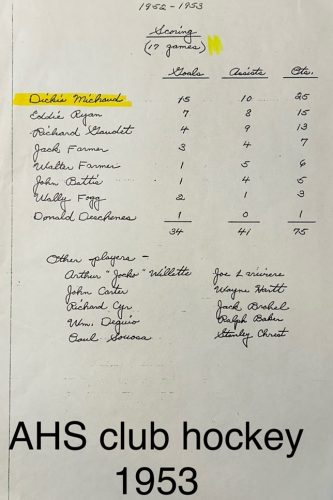 1952 - 1953
Scoring
(17 games)
Goals Assists Pts.
Dickie Michaud 15 10 25
Eddie Ryan 7 8 15
Richard Gaudet 4 9 13
Jack Farmer 3 4 7
Walter Farmer 1 5 6
John Battis 1 4 5
Wally Fogg 2 1 3
Donald Deschenes 1 0 1
34 41 75
Other players -
Arthur "Jocko" Willette Joe Lariviere
John Carter Wayne Hartt
Richard Cyr Jack Brakel
Wm. Deguio Ralph Baker
Paul Sousa Stanley Chrest
AHS club hockey
1953